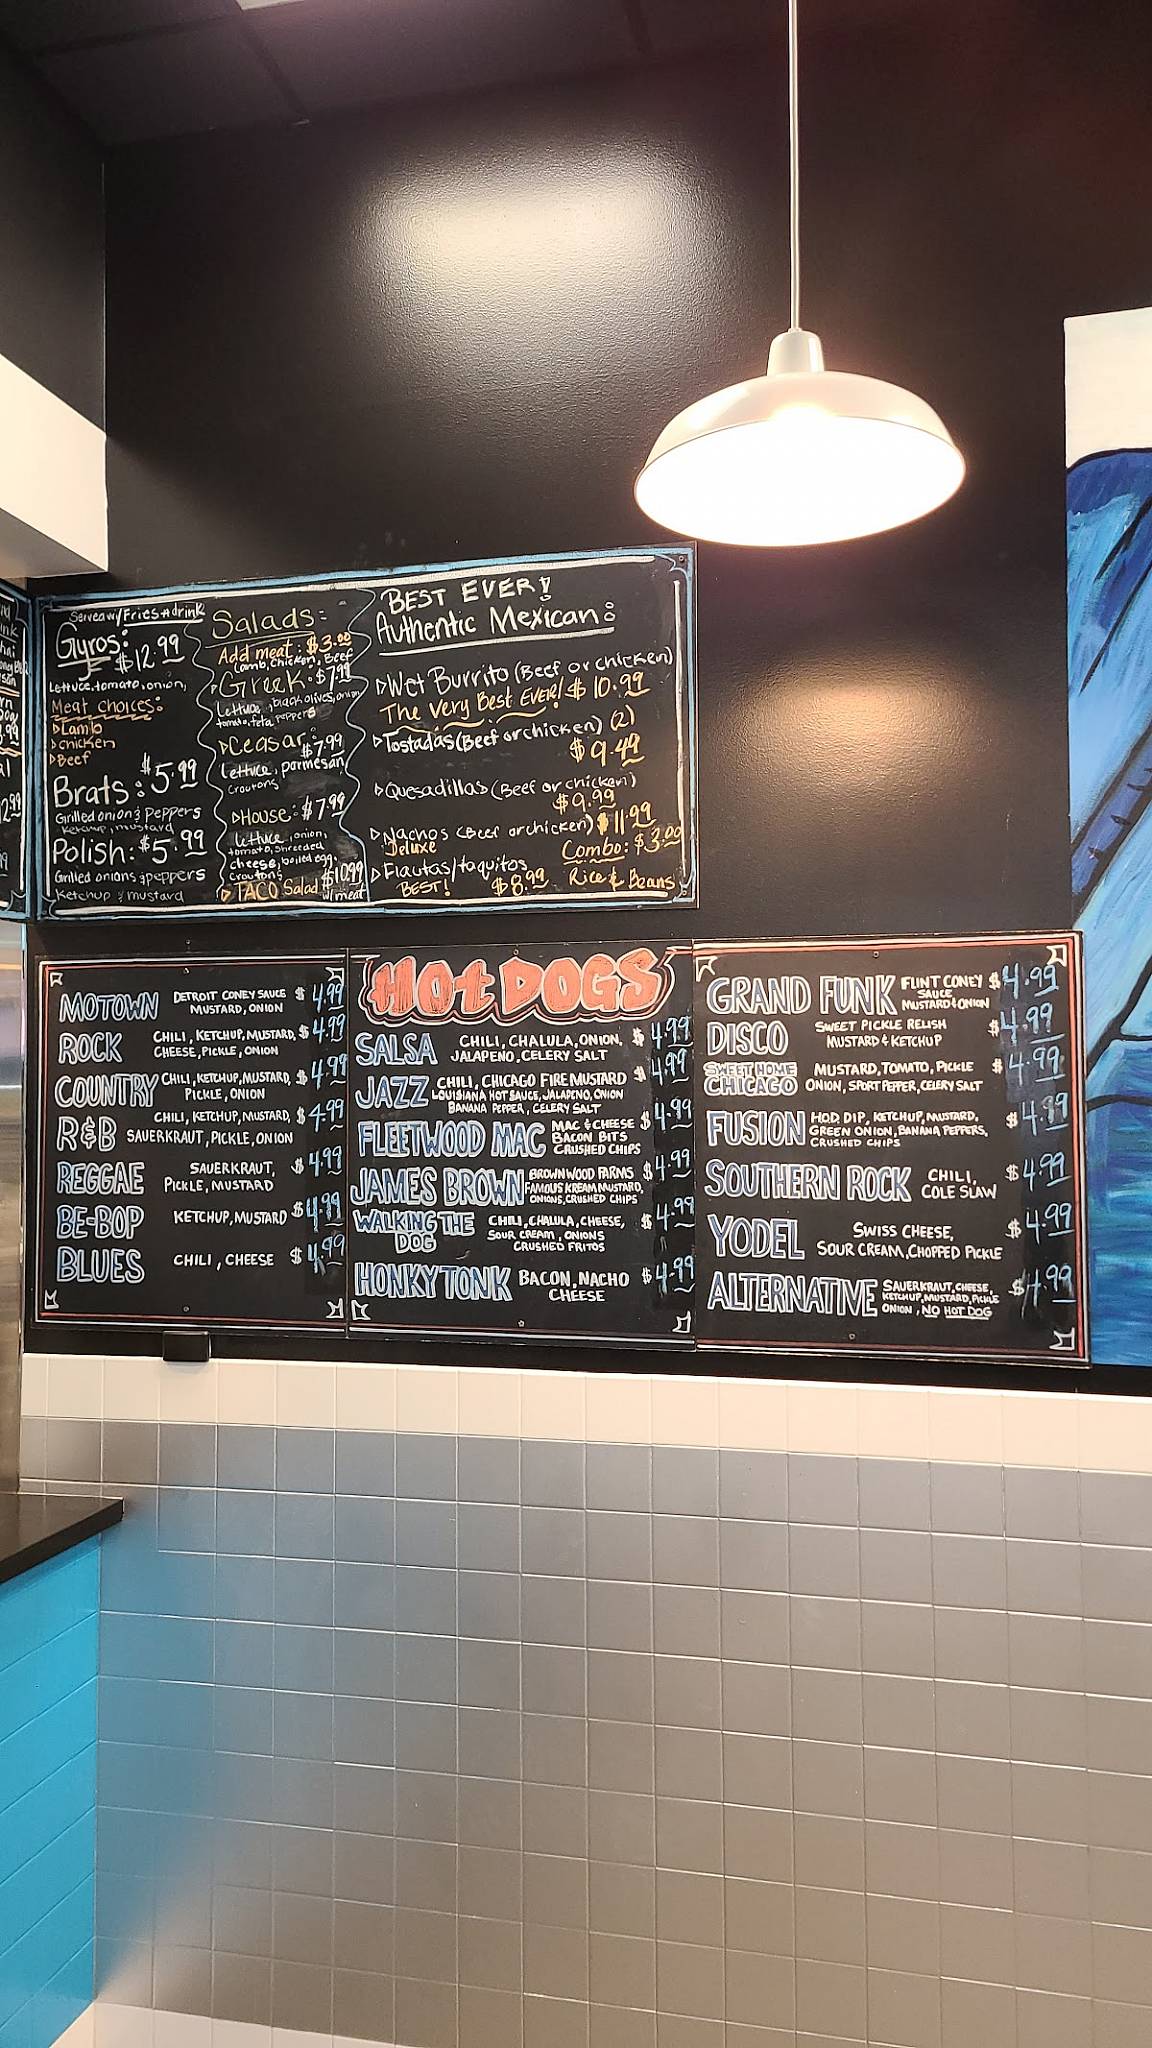 Served w/ Fries & drink
Gyros:
$12.99
Lettuce, tomato, onion,
Meat choices:
Lamb
chicken
Beef
Brats: $5.99
Grilled onion & peppers
Ketchup, mustard
Polish: $5.99
Grilled onions & peppers
Ketchup & mustard
Salads:
Add meat: $3.00
Lamb, Chicken, Beef
Greek: $7.99
Lettuce, black olives, onion
tomato, feta, peppers
Ceasar:
$7.99
Lettuce, parmesan,
croutons
House: $7.99
Lettuce, onion,
tomato, shredded
cheese, boiled egg,
croutons
TACO Salad $10.99
w/meat
BEST EVER!
Authentic Mexican:
Wet Burrito (Beef or chicken)
The Very Best EVER! $10.99
Tostadas (Beef or chicken) (2)
$9.49
Quesadillas (Beef or chicken)
$9.99
Nachos (Beef or chicken) $11.99
Deluxe
Combo: $3.00
Rice & Beans
Flautas/taquitos
BEST! $8.99
MOTOWN DETROIT CONEY SAUCE $4.99
MUSTARD, ONION
ROCK CHILI, KETCHUP, MUSTARD, $4.99
CHEESE, PICKLE, ONION
COUNTRY CHILI, KETCHUP, MUSTARD, $4.99
PICKLE, ONION
R&B CHILI, KETCHUP, MUSTARD, $4.99
SAUERKRAUT, PICKLE, ONION
REGGAE SAUERKRAUT, $4.99
PICKLE, MUSTARD
BE-BOP KETCHUP, MUSTARD $4.99
BLUES CHILI, CHEESE $4.99
HOT DOGS
SALSA CHILI, CHALULA, ONION, $4.99
JALAPENO, CELERY SALT
JAZZ CHILI, CHICAGO FIRE MUSTARD $4.99
LOUISIANA HOT SAUCE, JALAPENO, ONION
BANANA PEPPER, CELERY SALT
FLEETWOOD MAC MAC & CHEESE $4.99
BACON BITS
CRUSHED CHIPS
JAMES BROWN BROWNWOOD FARMS $4.99
FAMOUS KREAM MUSTARD,
ONIONS, CRUSHED CHIPS
WALKING THE DOG CHILI, CHALULA, CHEESE, $4.99
SOUR CREAM, ONIONS
CRUSHED FRITOS
HONKY TONK BACON, NACHO $4.99
CHEESE
GRAND FUNK FLINT CONEY $4.99
SAUCE
MUSTARD & ONION
DISCO SWEET PICKLE RELISH $4.99
MUSTARD & KETCHUP
SWEET HOME MUSTARD, TOMATO, PICKLE $4.99
CHICAGO ONION, SPORT PEPPER, CELERY SALT
FUSION HOD DIP, KETCHUP, MUSTARD, $4.99
GREEN ONION, BANANA PEPPERS,
CRUSHED CHIPS
SOUTHERN ROCK CHILI, $4.99
COLE SLAW
YODEL SWISS CHEESE, $4.99
SOUR CREAM, CHOPPED PICKLE
ALTERNATIVE SAUERKRAUT, CHEESE, $4.99
KETCHUP, MUSTARD, PICKLE
ONION, NO HOT DOG